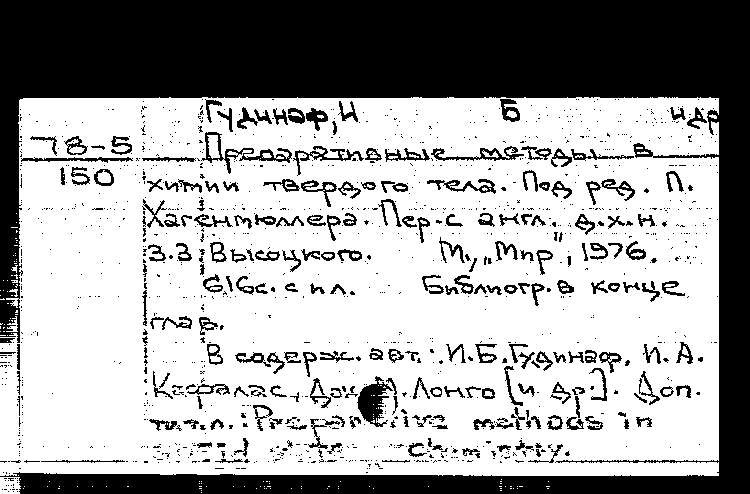 Гудинаф, И Б и др
78-5
Препаративные методы в
150
химии твердого тела. Под ред. П.
Хагенмюллера. Пер. с англ. д.х.н.
З.З Высоцкого. М., "Мир", 1976.
616с. с ил. Библиогр. в конце
глав.
В содерж. авт.: И.Б. Гудинаф, И.А.
Кафалас, Дж. М. Лонго [и др.]. Доп.
тит.л.: Preparative methods in
solid state chemistry.